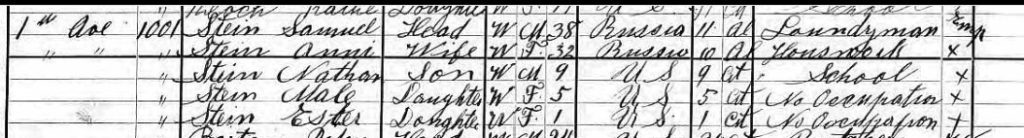 Daughter W F. 11 U S
1st Ave 1001 Stein Samuel Head W M 38 Russia 11 Al Laundryman Emp
" " " Stein Anni Wife W F. 32 Russia 10 Al Housework x
" Stein Nathan Son W M 9 U S 9 Cit School x
" Stein Male Daughter W F. 5 U S 5 Cit No Occupation x
" Stein Ester Daughter W F. 1 U S. 1 Cit No Occupation x
Head W M U S